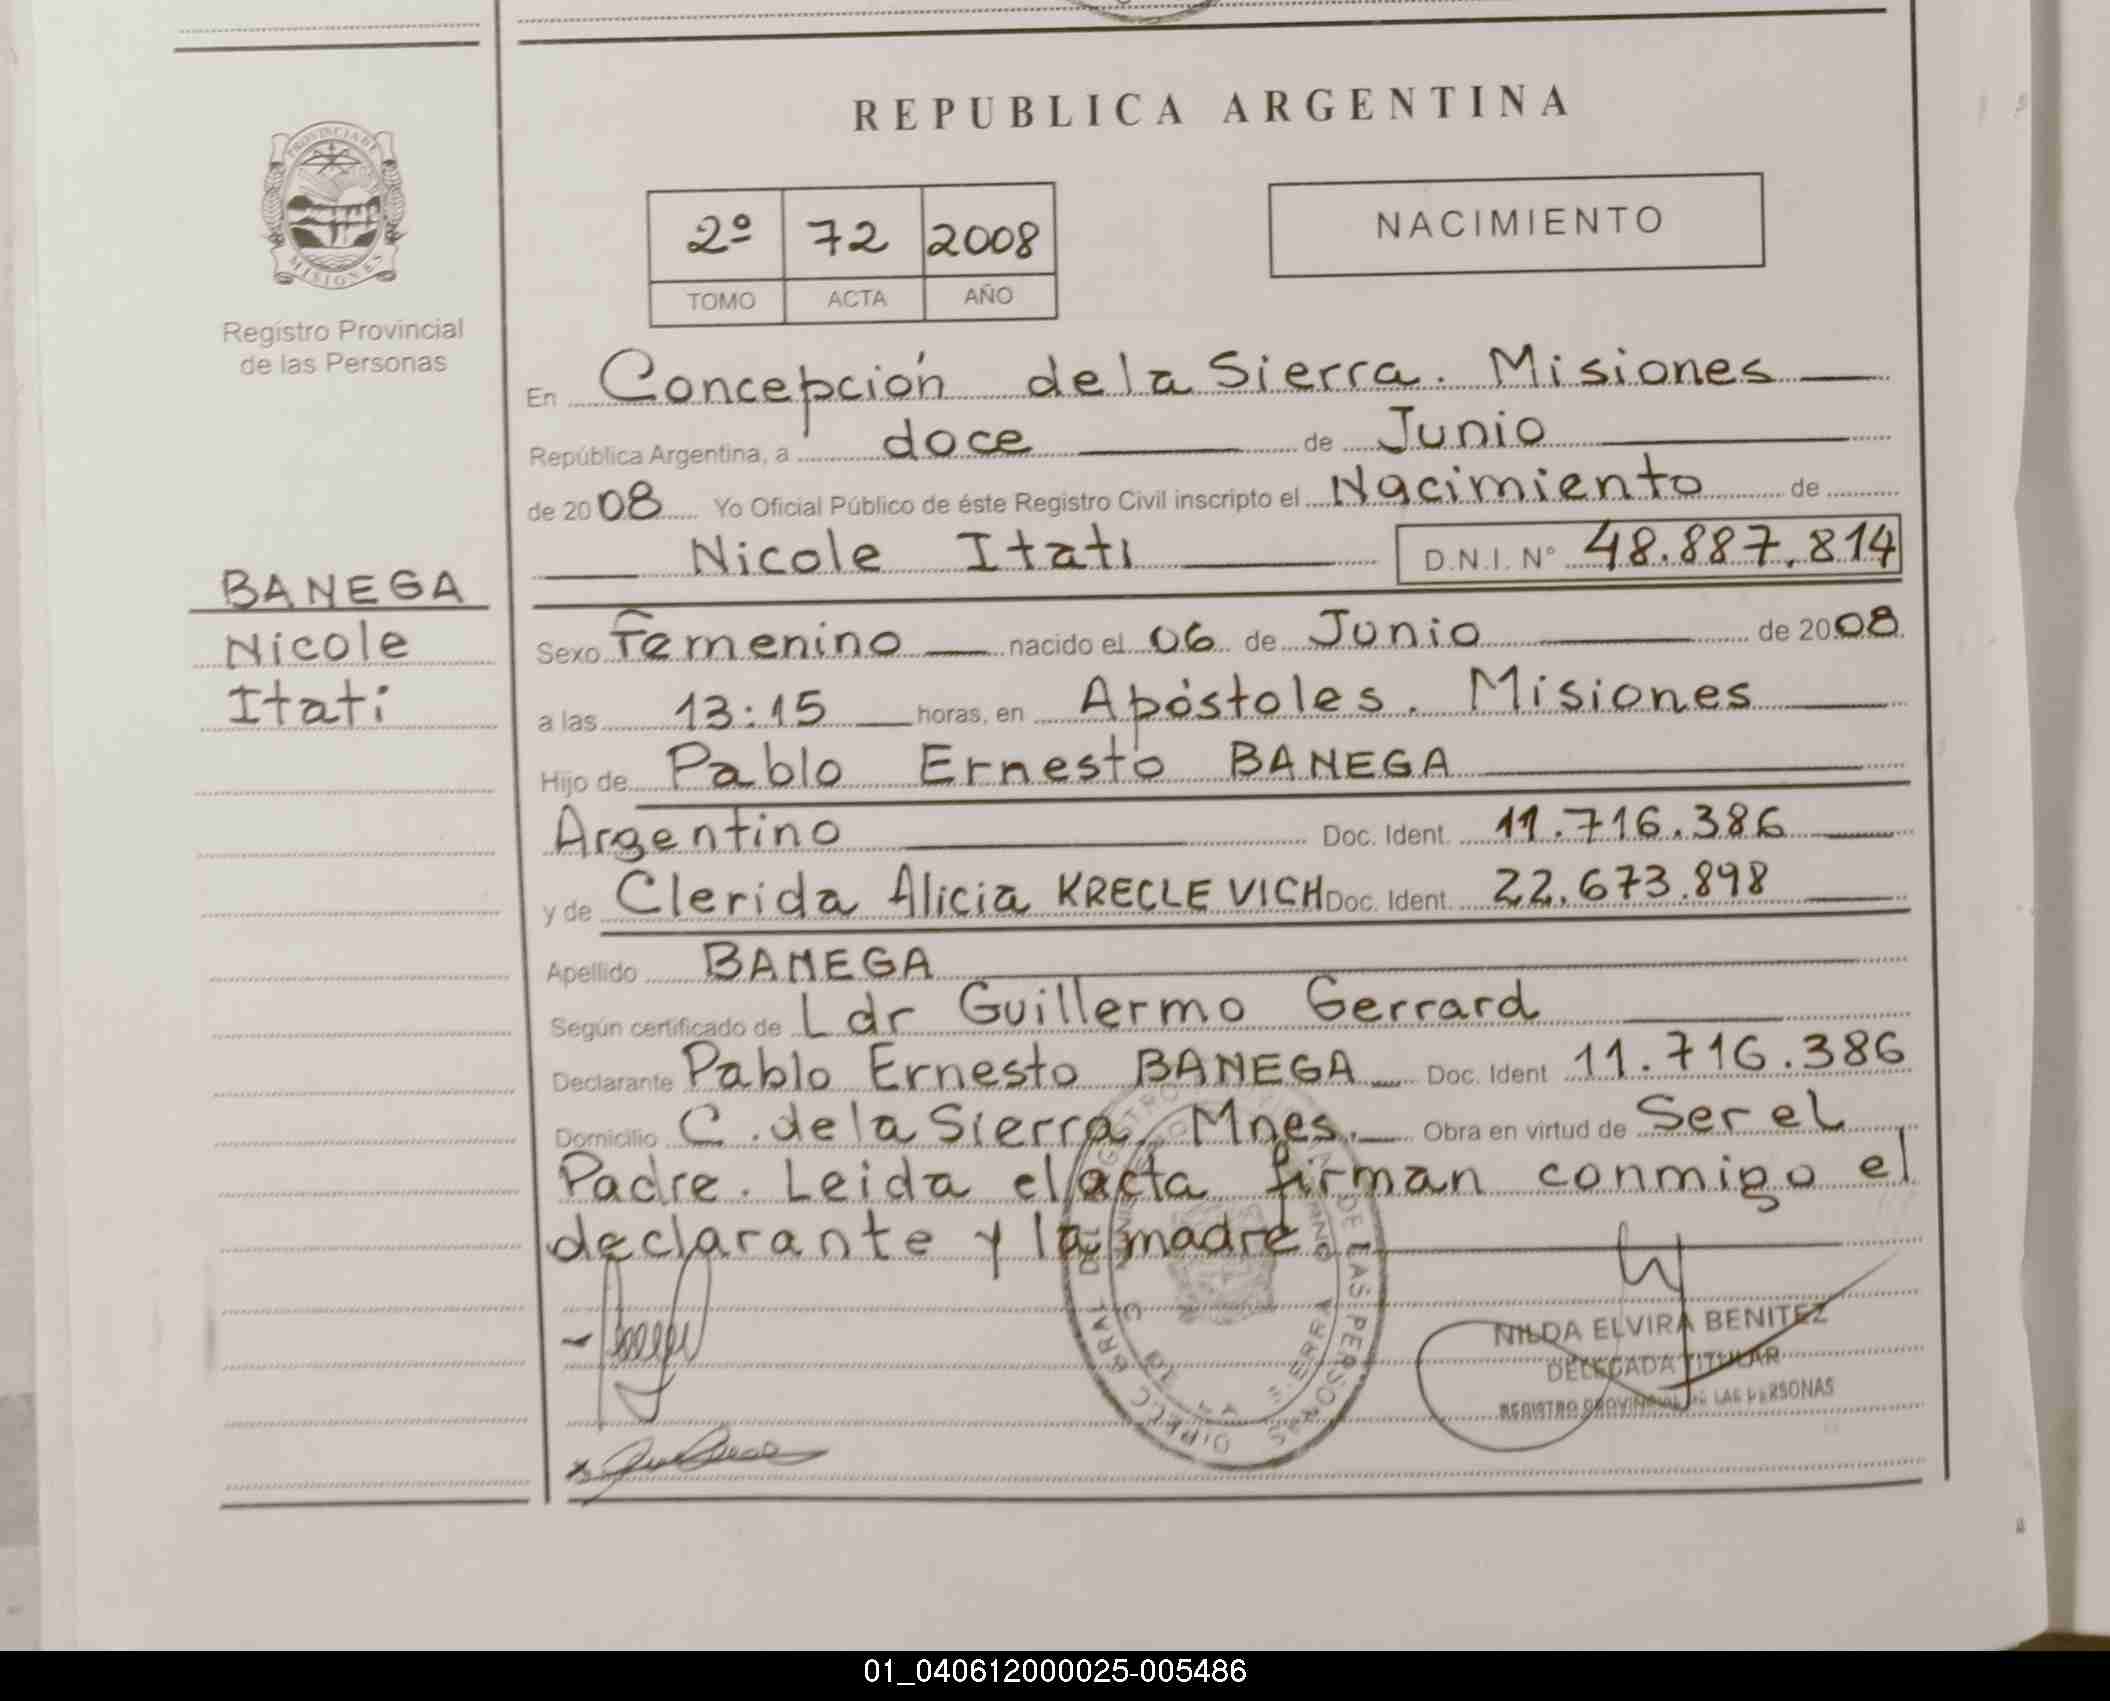 REPUBLICA ARGENTINA
PROVINCIA DE
MISIONES
Registro Provincial
de las Personas
2º 72 2008
TOMO ACTA AÑO
NACIMIENTO
En Concepción de la Sierra. Misiones
República Argentina, a doce de Junio
de 2008 Yo Oficial Público de éste Registro Civil inscripto el Nacimiento de
Nicole Itati D.N.I. Nº 48.887.814
BANEGA
Nicole
Itati
Sexo Femenino nacido el 06 de Junio de 2008
a las 13:15 horas, en Apóstoles. Misiones
Hijo de Pablo Ernesto BANEGA
Argentino Doc. Ident. 11.716.386
y de Clerida Alicia KRECLEVICH Doc. Ident. 22.673.898
Apellido BANEGA
Según certificado de Ldr Guillermo Gerrard
Declarante Pablo Ernesto BANEGA Doc. Ident 11.716.386
Domicilio C. de la Sierra Mnes. Obra en virtud de Ser el
Padre. Leida el acta firman conmigo el
declarante y la madre
NILDA ELVIRA BENITEZ
DELEGADA TITULAR
REGISTRO PROVINCIAL DE LAS PERSONAS
DE LAS PERSONAS
01_040612000025-005486